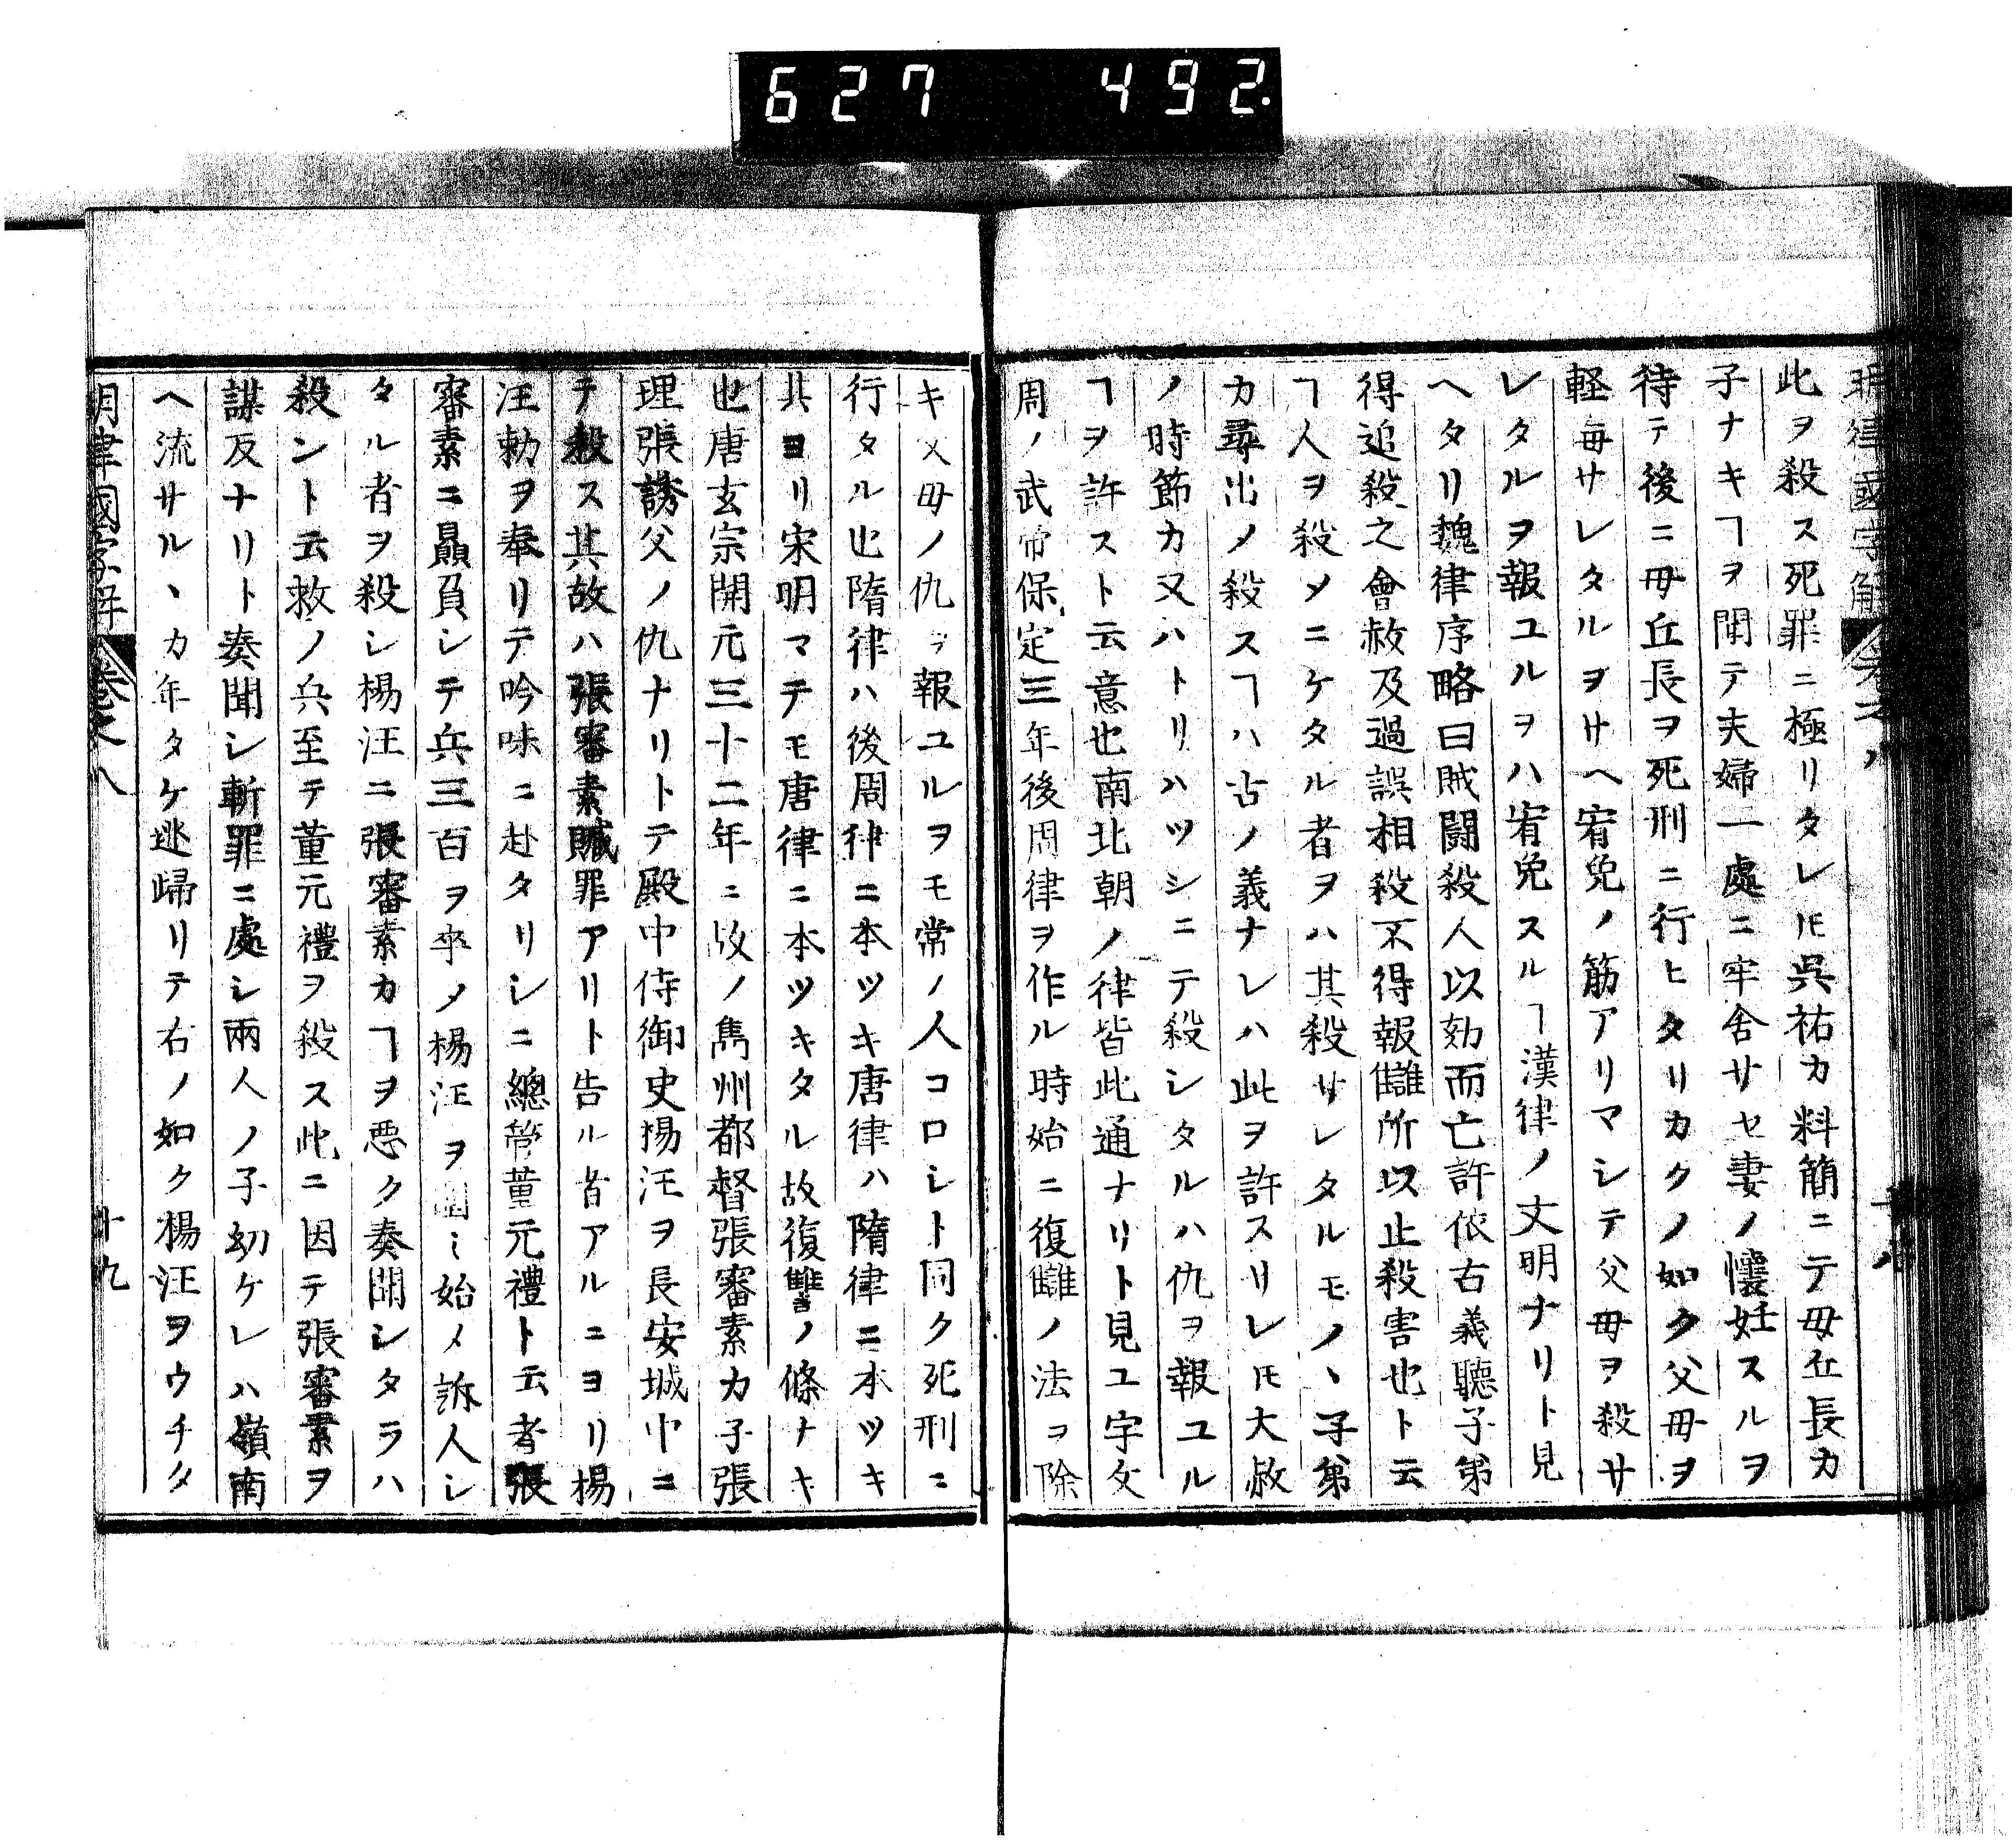 627 492
明律國字解 卷之八 十八
此ヲ殺ス死罪ニ極リタレ𪜈呉祐カ料簡ニテ毋丘長カ
子ナキヿヲ聞テ夫婦一處ニ牢舍サセ妻ノ懷妊スルヲ
待テ後ニ毋丘長ヲ死刑ニ行ヒタリカクノ如ク父母ヲ
軽毎サレタルヲサヘ宥免ノ筋アリマシテ父母ヲ殺サ
レタルヲ報ユルヲハ宥免スルヿ漢律ノ文明ナリト見
ヘタリ魏律序略曰賊鬪殺人以劾而亡許依古義聽子弟
得追殺之會赦及過誤相殺不得報讎所以止殺害也ト云
ヿ人ヲ殺メニケタル者ヲハ其殺サレタルモノヽ子弟
カ尋出メ殺スヿハ古ノ義ナレハ此ヲ許スリレ𪜈大赦
ノ時節カ又ハトリハツシニテ殺レタルハ仇ヲ報ユル
ヿヲ許スト云意也南北朝ノ律皆此通ナリト見ユ宇文
周ノ武帝保定三年後周律ヲ作ル時始ニ復讎ノ法ヲ除
キメ毋ノ仇ヲ報ユルヲモ常ノ人コロシト同ク死刑ニ
行タル也隋律ハ後周律ニ本ツキ唐律ハ隋律ニ本ツキ
其ヨリ宋明マテモ唐律ニ本ツキタル故復讐ノ條ナキ
也唐玄宗開元三十二年ニ故ノ雋州都督張審素カ子張
理張誘父ノ仇ナリトテ殿中侍御史楊汪ヲ長安城中ニ
テ殺ス其故ハ張審素贓罪アリト告ル者アルニヨリ楊
汪勅ヲ奉リテ吟味ニ赴タリシニ總管董元禮ト云者張
審素ニ贔負シテ兵三百ヲ率メ楊汪ヲ圍ミ始メ訴人シ
タル者ヲ殺シ楊汪ニ張審素カヿヲ悪ク奏聞シタラハ
殺ント云救ノ兵至テ董元禮ヲ殺ス此ニ因テ張審素ヲ
謀反ナリト奏聞シ斬罪ニ處シ兩人ノ子幼ケレハ嶺南
ヘ流サルヽカ年タケ逃歸リテ右ノ如ク楊汪ヲウチタ
明律國字解 卷之八 十九